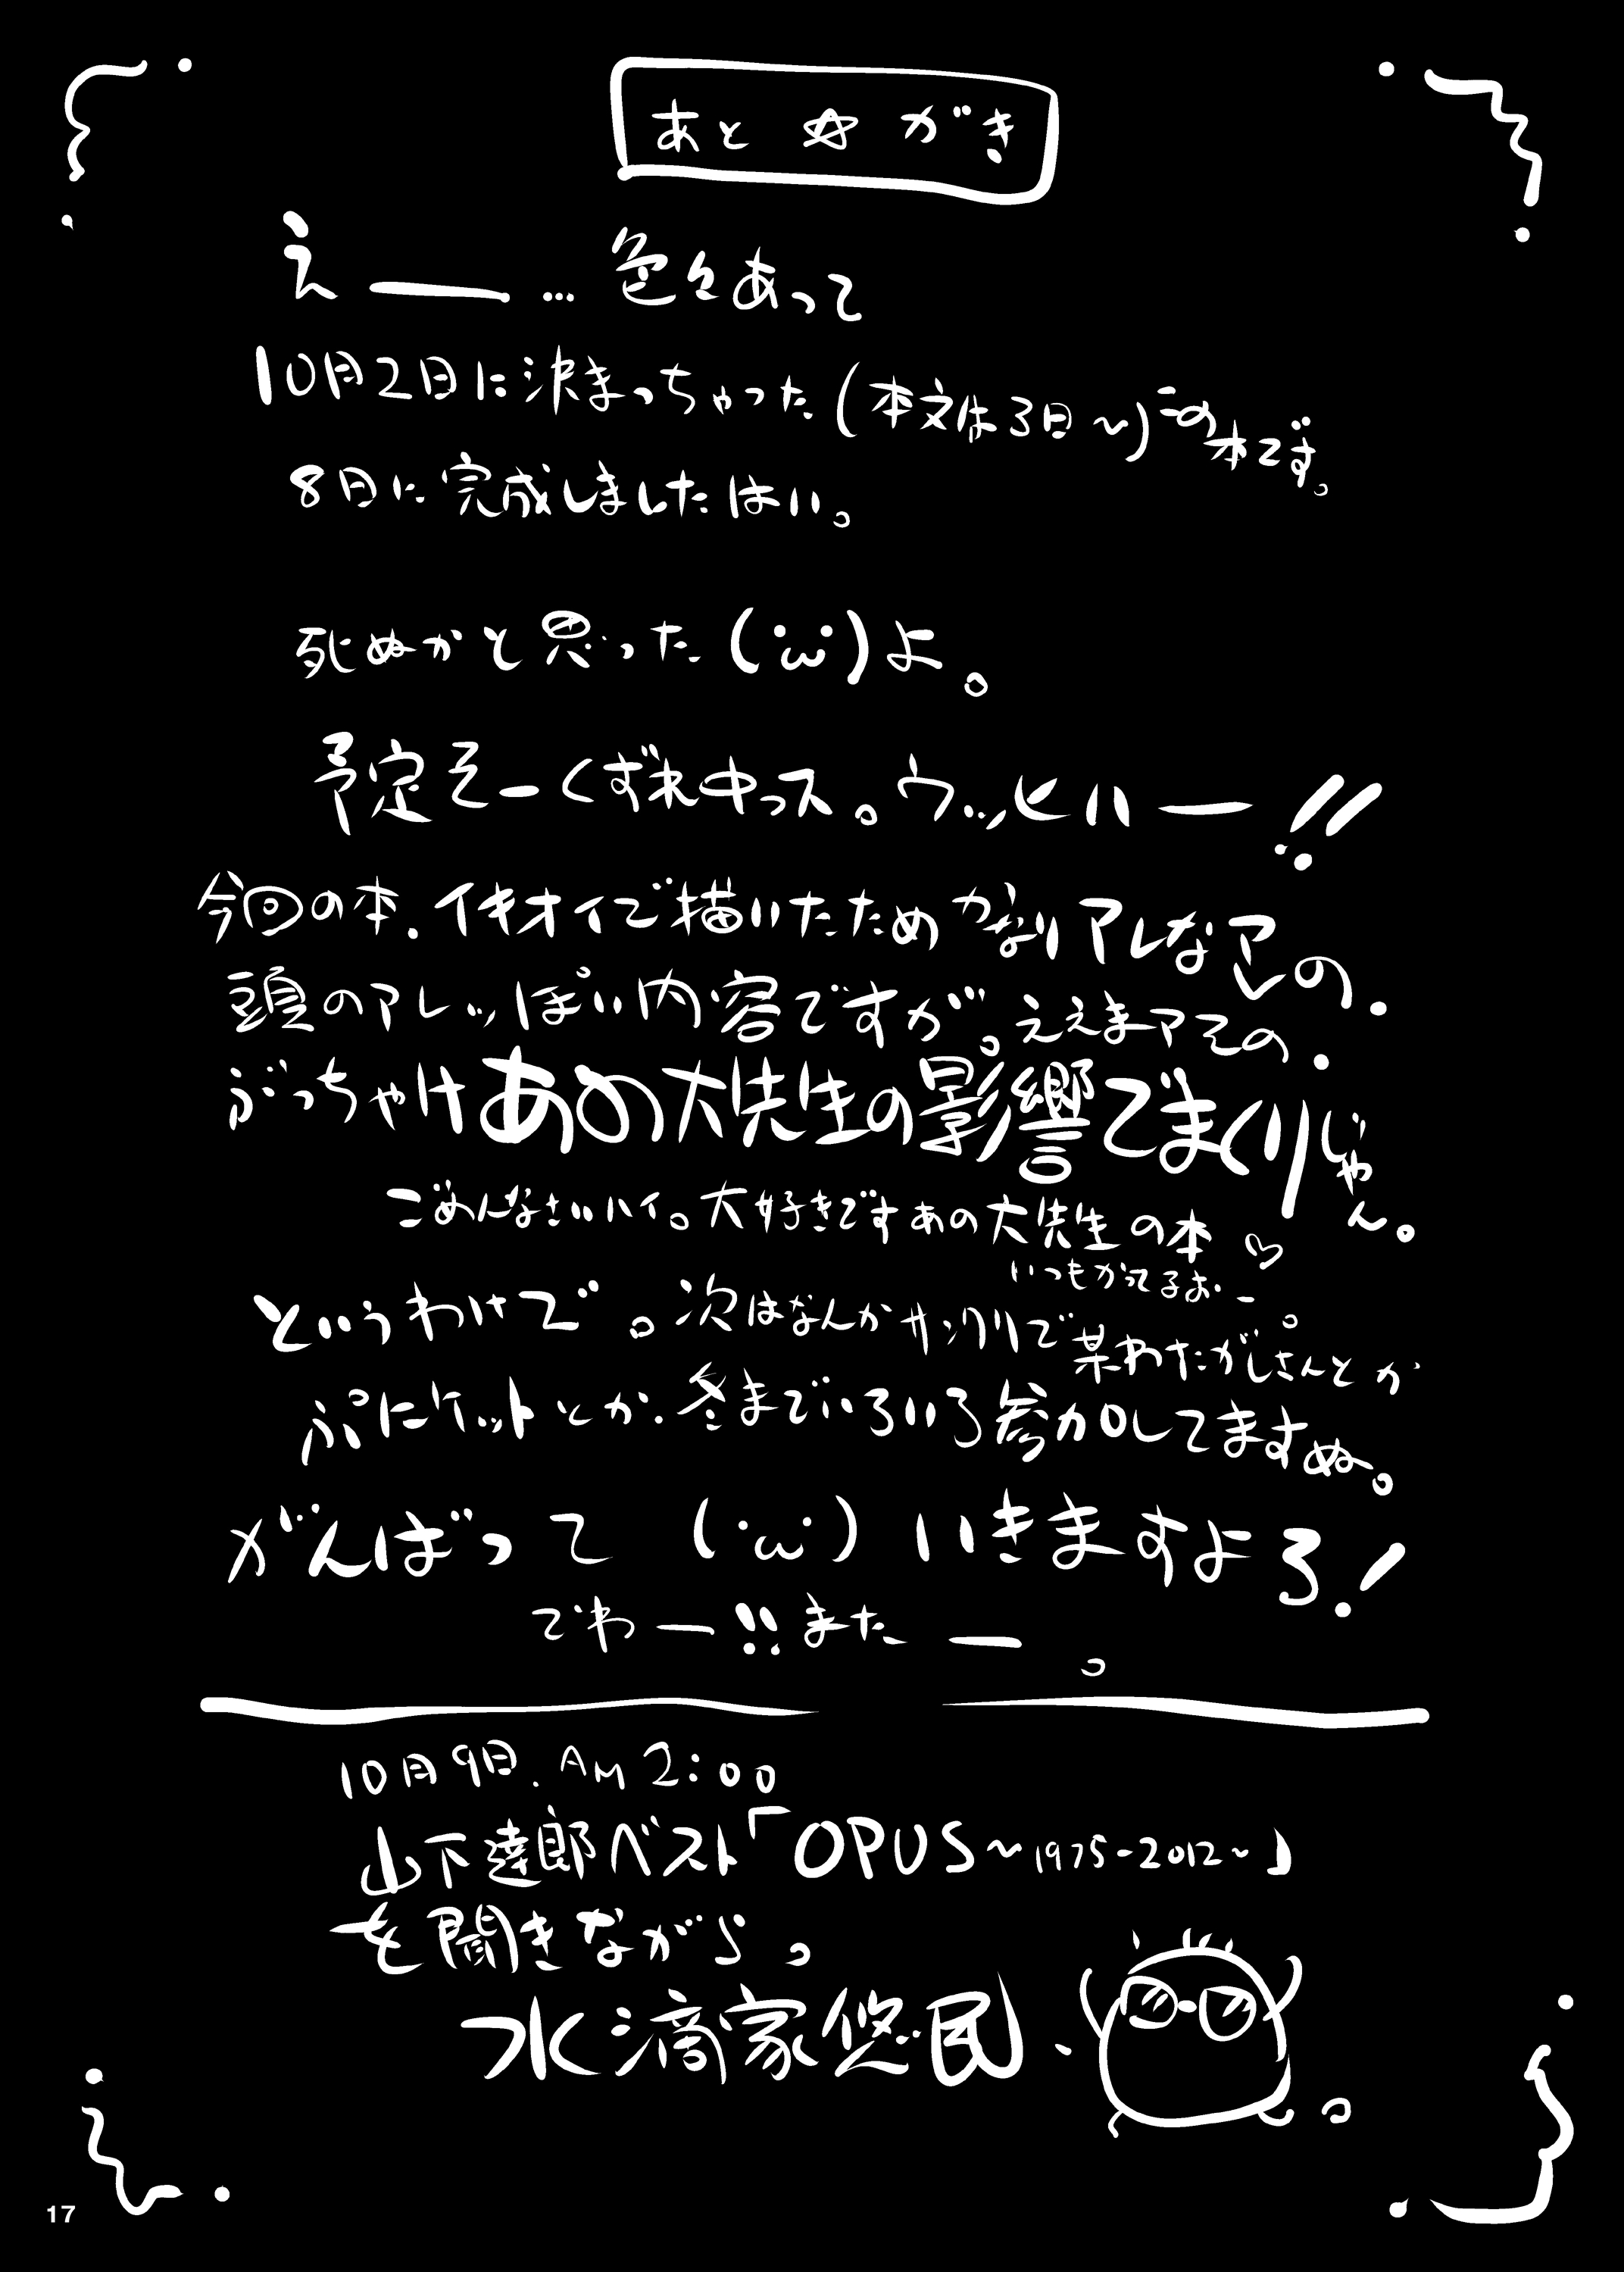 あと☆がき
えー…色々あって
10月2日に決まっちゃった(本文は3日〜)この本です。
8日に完成しましたはい。
死ぬかと思った(;ω;)よ。
予定そーくずれ中っス。ウッヒハー!!
今回の本、イキオイで描いたためかなりアレなアレの、
頭のアレッぽい内容ですが。ええまアその、
ぶっちゃけあの大先生の影響でまくりじゃん。
ごめんなさいハイ。大好きですあの大先生の本♡
いつもかってるおー。
というわけで。次はなんかサンクリで某わたがしさんとか
ぷにケットとか、冬までいろいろ参加してますぬ。
がんばって(・ω・)いきますよろ!
でわー!!またー。
10月9日、AM2:00
山下達郎ベスト「OPUS〜1975-2012〜」
を聞きながら。
水滴家悠民、
17